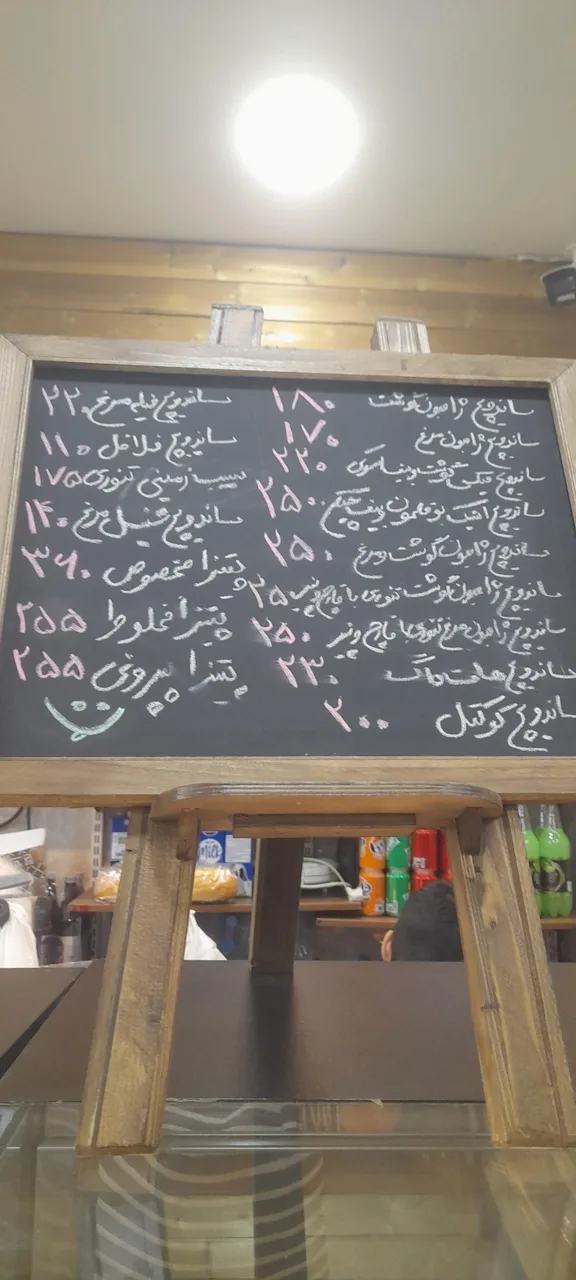 ساندویچ ژامبون گوشت ۱۸۰
ساندویچ ژامبون مرغ ۱۷۰
ساندویچ گوشت و ۲۲۰
ساندویچ بوقلمون و ۲۵۰
ساندویچ ژامبون گوشت و مرغ ۲۵۰
ساندویچ ژامبون گوشت تنوری با قارچ و پنیر ۲۵۰
ساندویچ ژامبون مرغ تنوری با قارچ و پنیر ۲۵۰
ساندویچ هات داگ ۲۳۰
ساندویچ کوکتل ۲۰۰
ساندویچ فیله مرغ ۲۲۰
ساندویچ فلافل ۱۱۰
سیب زمینی تنوری ۱۷۵
ساندویچ شنیسل مرغ ۱۴۰
پیتزا مخصوص ۳۶۰
پیتزا مخلوط ۲۵۵
پیتزا پپرونی ۲۵۵
Milk